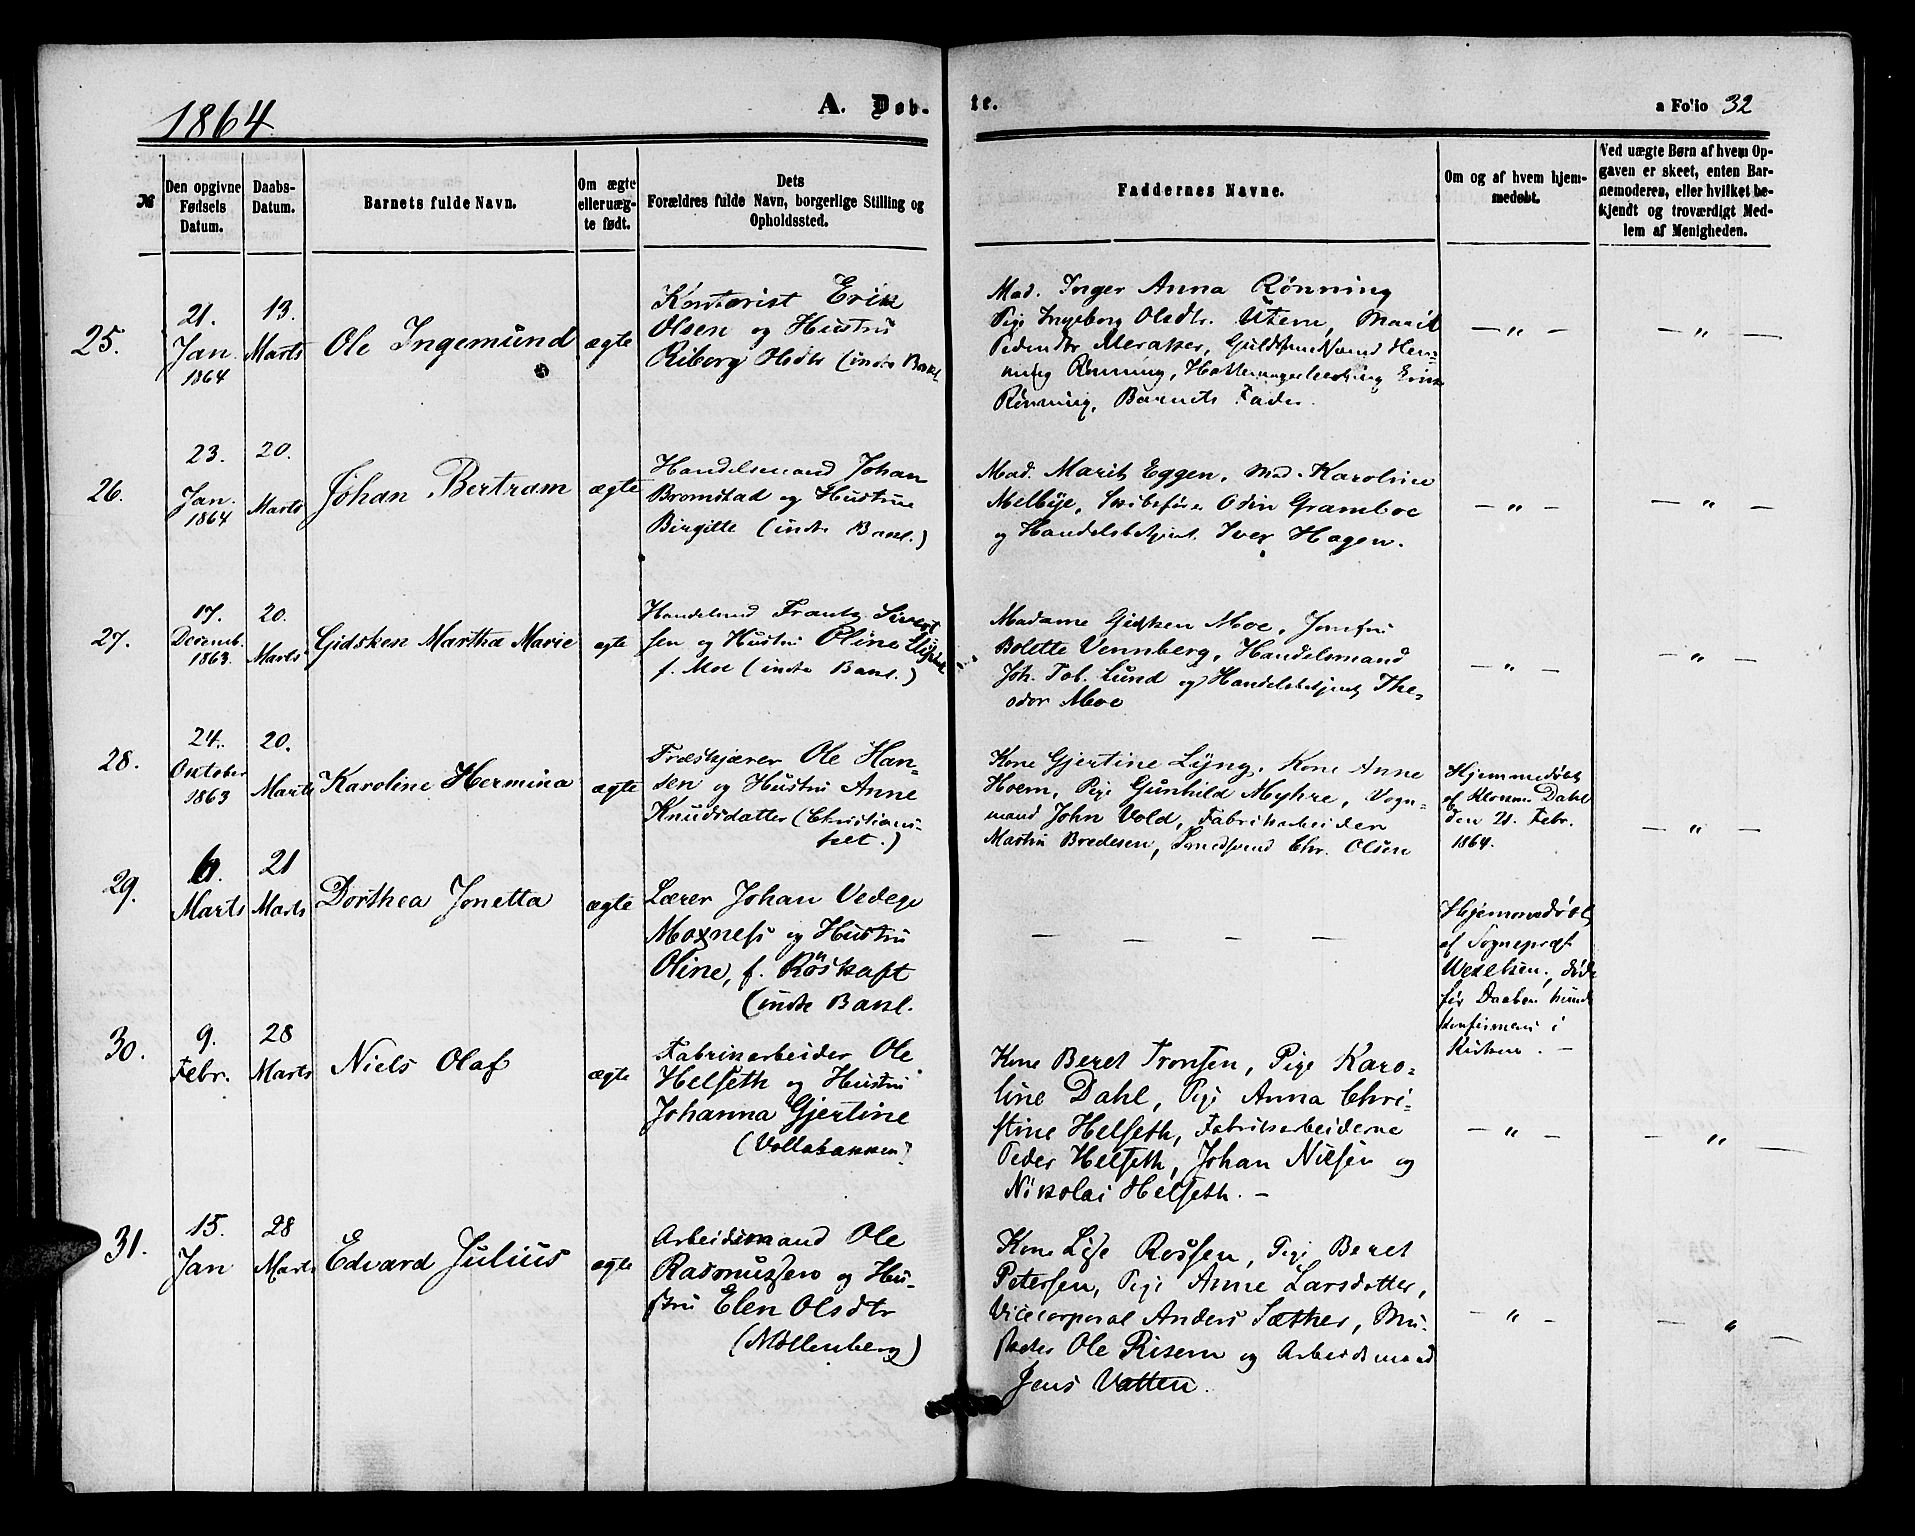 1864
A. Døb-
te.
a Folio 32
№
Den opgivne
Fødsels
Datum.
Daabs-
Datum.
Barnets fulde Navn.
Om ægte
elleruæg-
te født.
Dets
Forældres fulde Navn, borgerlige Stilling og
Opholdssted.
Faddernes Navne.
Om og af hvem hjem-
medøbt.
Ved uægte Børn af hvem Op-
gaven er skeet, enten Bar-
nemoderen, eller hvilket be-
kjendt og troværdigt Med-
lem af Menigheden.
25.
21.
Jan.
1864
13.
Marts
Ole Ingemund
ægte
Kontorist Erik
Olsen og Hustru
Riborg Hsdtr (indre Bakl.
Mad. Inger Anna Rønning
Pige Ingeborg Olsdtr. Utem, Marit
Pedersdtr Meraker, Guldsmedsvend Hen-
ning Rønning, Hattemagerlærling Erik
Rønning, Barnets Fader.
— " —
— " —
26.
23.
Jan.
1864
20.
Marts
Johan Bertram
ægte
Handelsmand Johan
Bromstad og Hustru
Birgitte (indre Bakl.)
Mad. Marit Eggen, Mad. Karoline
Melbye, Skibsfører Odin Gramboe
og Handelsbetjent Iver Hagen.
— " —
— " —
27.
17.
Decemb.
1863.
20.
Marts
Gidsken Martha Marie
ægte
Handelsmd Frantz Sivert
sen og Hustru Oline
f. Moe (indre Bakl.)
Madame Gidsken Moe, Jomfru
Bolette Vennberg, Handelsmand
Joh. Tob. Lund og Handelsbetjent The-
odor Moe
— " —
— " —
28.
24.
Oktober
1863
20.
Marts
Karoline Hermina
ægte
Træskjærer Ole Han-
sen og Hustru Anne
Knudsdatter (Christians-
feet.)
Kone Gjertine Lyng, Kone Anne
Hoem, Pige Gunhild Myhre, Vogn-
mand John Vold, Fabrikarbeider
Martin Bredesen, Smedsvend Chr. Olsen
Hjemmedøbt
af Dahl
den 21. Febr.
1864.
— " —
29.
6.
Marts
21
Marts
Dorthea Jonetta
ægte
Lærer Johan Vedege
Moxness og Hustru
Oline, f. Röskaft
(indre Bakl.
— — — —
Hjemmedøbt
af Sognepræst
Wexelsen, død
før Daaben kunde
konfirmeres i
Kirken. —
30.
9.
Febr.
28
Marts
Niels Olaf
ægte
Fabrikarbeider Ole
Helseth og Hustru
Johanna Gjertine
(Vollabakken)
Kone Beret Tronsen, Pige Karo-
line Dahl, Pige Anna Chri-
stine Helseth, Fabrikarbeiderne
Peder Helseth, Johan Nilsen og
Nikolai Helseth. —
— " —
— " —
31.
15.
Jan
28
Marts
Edvard Julius
ægte
Arbeidsmand Ole
Rasmussen og Hu-
stru Elen Olsdtr
(Möllenberg)
Kone Lise Rossen, Pige Beret
Petersen, Pige Anne Larsdatter,
Vicecorporal Anders Sæther, Mu-
Ole Risem og Arbeidsmand
Jens Vatten.
— " —
— " —